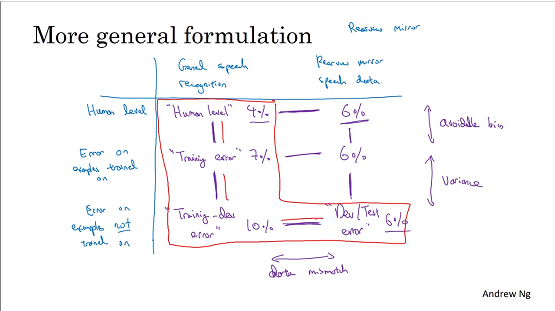 More general formulation
Rearview mirror
General speech
recognition
Rearview mirror
speech data
Human level
"Human level" 4%
6%
avoidable bias
Error on
examples trained
on
"Training error" 7%
6%
Variance
Error on
examples not
trained on
"Training-dev
error" 10%
"Dev/Test
error" 6%
data mismatch
Andrew Ng